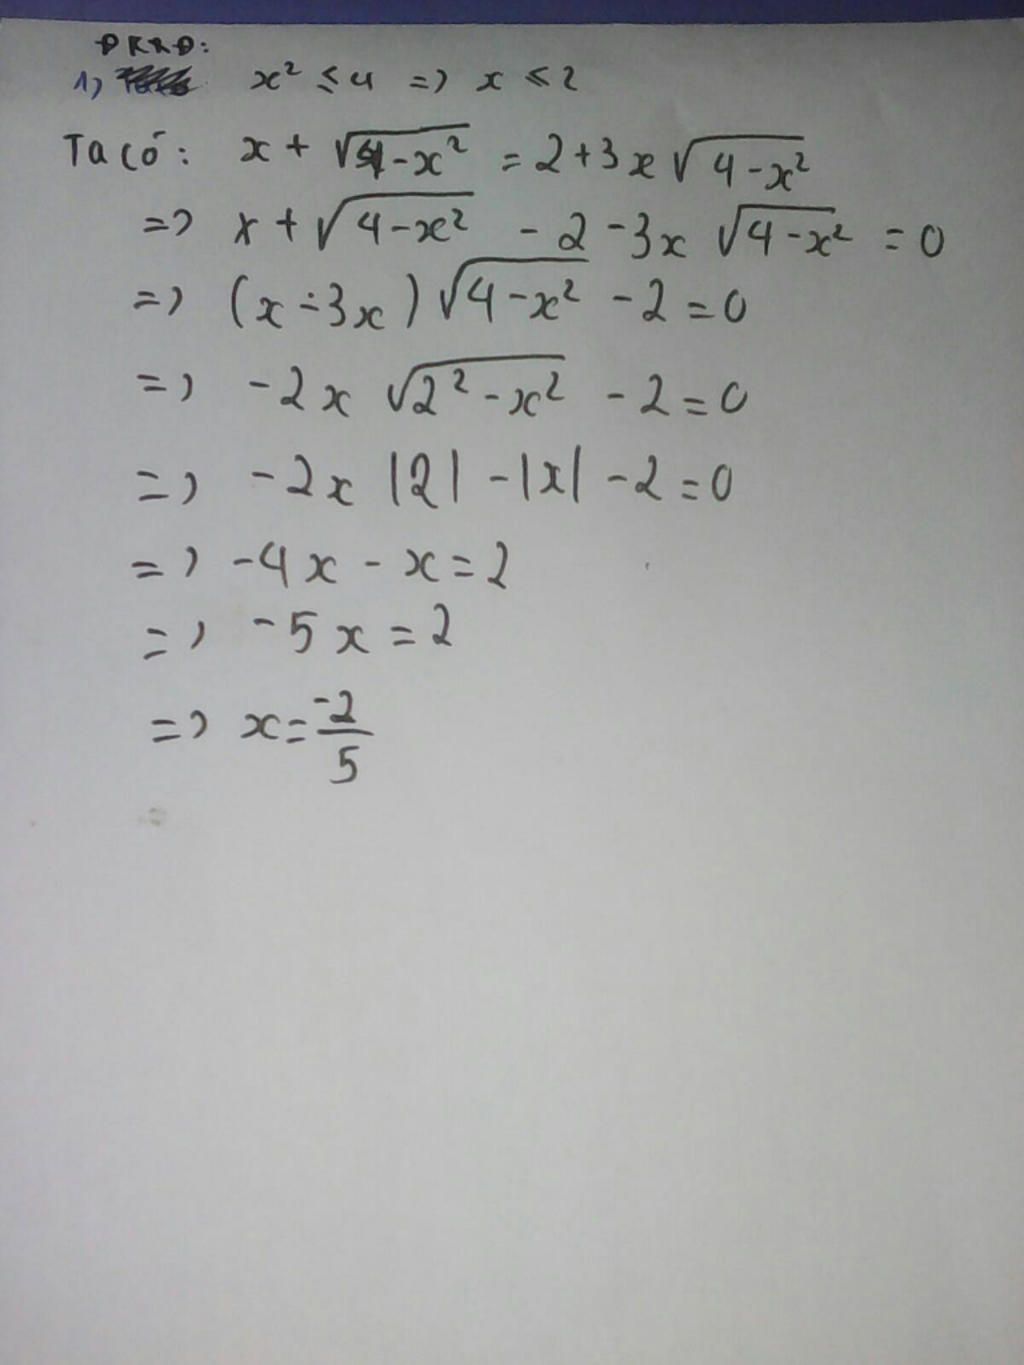 ĐKXĐ:
1) x² ≤ 4 => x ≤ 2
Ta có: x + √4-x² = 2+3x√4-x²
=> x + √4-x² - 2 - 3x √4-x² = 0
=> (x - 3x)√4-x² - 2 = 0
=> -2x √2²-x² - 2 = 0
=> -2x |2| - |x| - 2 = 0
=> -4x - x = 2
=> -5x = 2
=> x = -2/5